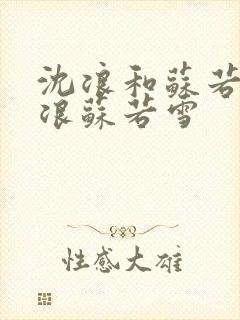 沈浪和蘇若
浪蘇若雪
性感大雄